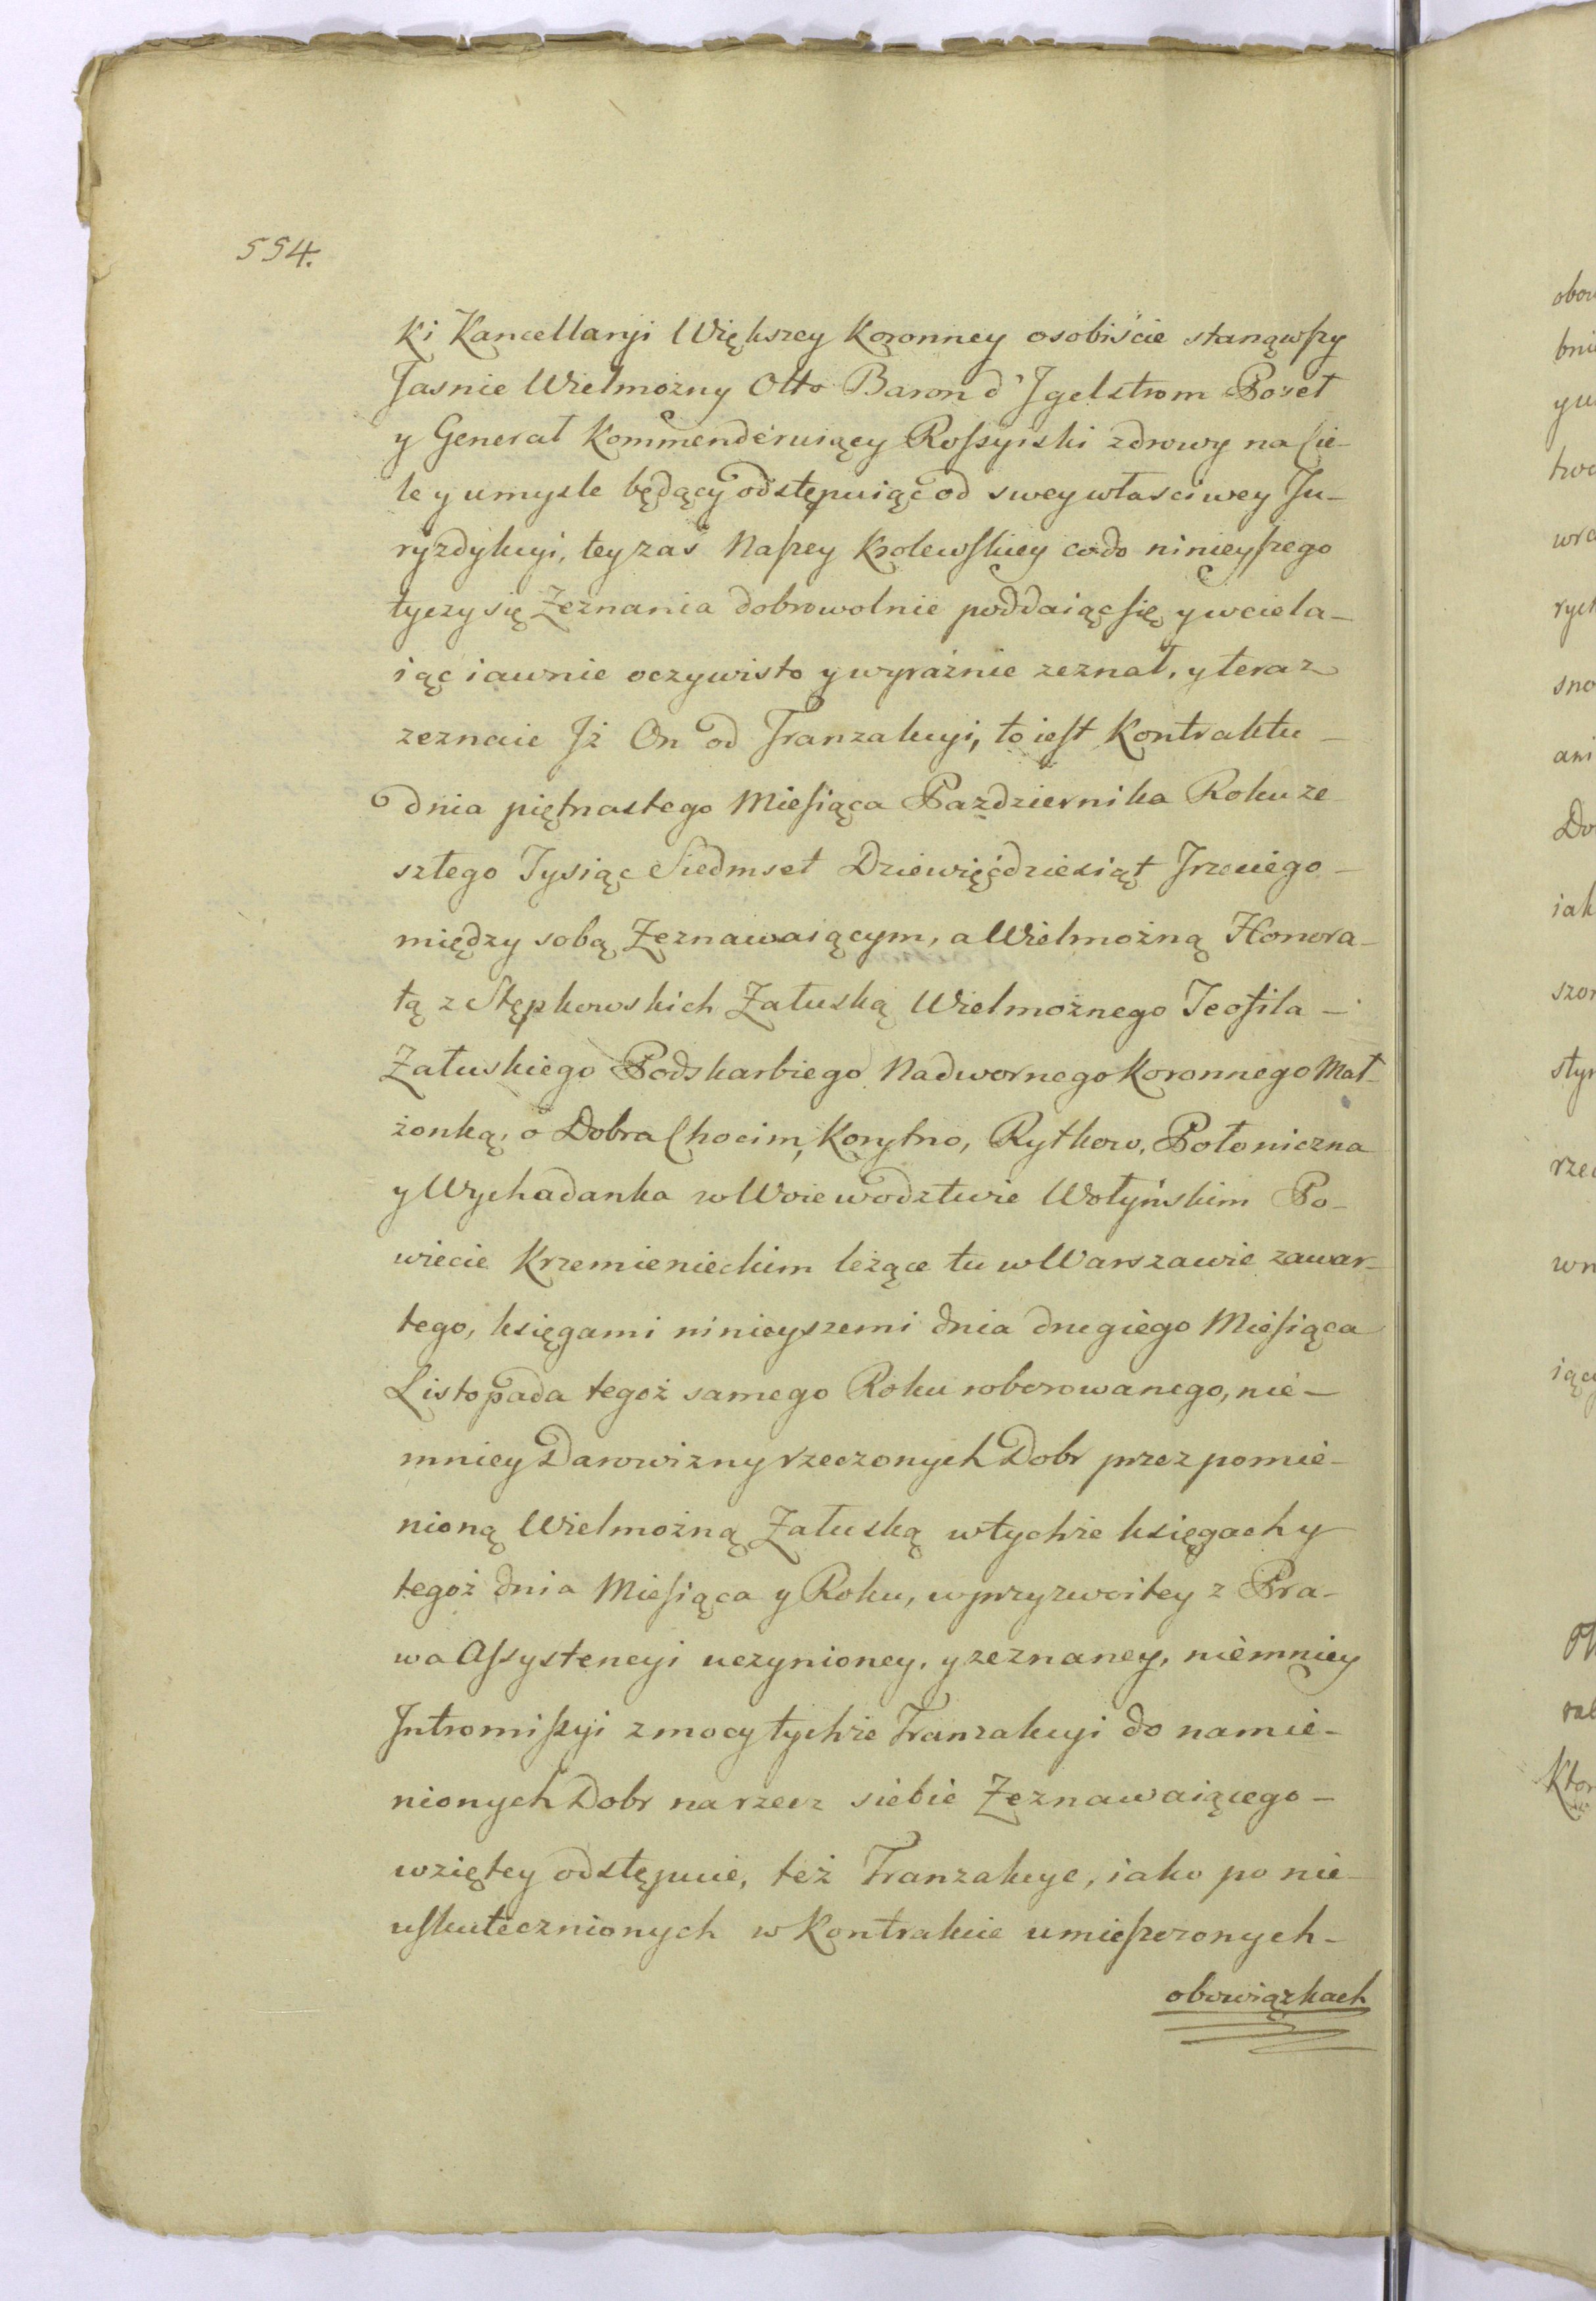 554.
ki Kancellaryi Większey Koronney osobiście stanąwszy
Jasnie Wielmożny Otto Baron d'Jgelstrom Poseł
y Generał Kommenderuiący Rossyiski zdrowy na Cie-
le y umysle będący odstępuiąc od swey własciwey Ju-
ryzdykcyi, tey zaś Naszey Krolewskiey co do ninieyszego
tyczy się Zeznania dobrowolnie poddaiąc się y wciela-
iąc iawnie oczywisto y wyraźnie zeznał, y teraz
zeznaie Jż On od Tranzakcyi, to iest Kontraktu -
dnia piętnastego Miesiąca Pazdziernika Roku ze
szłego Tysiąc Siedmset Dziewięćdziesiąt Trzeciego -
między sobą Zeznawaiącym, a Wielmożną Honora-
tą z Stępkowskich Załuską Wielmożnego Teofila -
Załuskiego Podskarbiego Nadwornego Koronnego Mał-
żonką, o Dobra Chocim, Korytno, Rytkow, Połoniczna
y Wychadanka w Woiewodztwie Wołyńskim Po-
wiecie Krzemienieckim leżące tu w Warszawie zawar-
tego, księgami ninieyszemi dnia drugiego Miesiąca
Listopada tegoż samego Roku roborowanego, nie-
mniey Darowizny rzeczonych Dobr przez pomie-
nioną Wielmożną Załuską w tychże księgach y
tegoż dnia Miesiąca y Roku, w przyzwoitey z Pra-
wa Assystencyi uczynioney, y zeznaney, niemniey
Jntromissyi z mocy tychże Tranzakcyi do namie-
nionych Dobr na rzecz siebie Zeznawaiącego -
wziętey odstępuie, też Tranzakcye, iako po nie
uskutecznionych w Kontrakcie umieszczonych -
obowiązkach